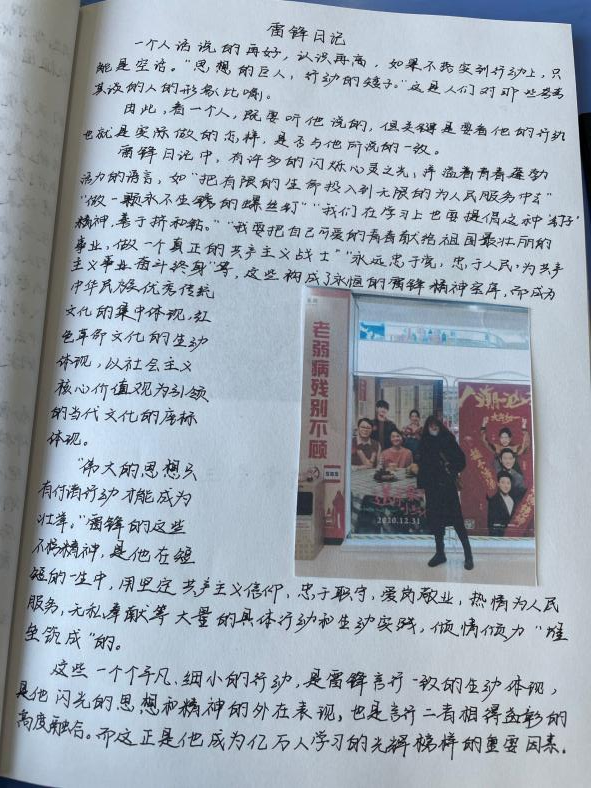 雷锋日记
一个人话说的再好,认识再高,如果不落实到行动上,只
能是空话。“思想的巨人,行动的矮子。”这是人们对那些
其谈的人的形象比喻。
因此,看一个人,既要听他说的,但关键是要看他的行动
也就是实际做的怎样,是否与他所说的一致。
雷锋日记中,有许多的闪烁心灵之光,洋溢着青春蓬勃
活力的语言,如“把有限的生命投入到无限的为人民服务中去”
“做一颗永不生锈的螺丝钉”“我们在学习上也要提倡这种‘钉子’
精神,善于挤和钻。”“我要把自己可爱的青春献给祖国最壮丽的
事业,做一个真正的共产主义战士”“永远忠于党,忠于人民,为共产
主义事业奋斗终身”等,这些构成了永恒的雷锋精神宝库,而成为
中华民族优秀传统
文化的集中体现,红
色革命文化的生动
体现,以社会主义
核心价值观为引领
的当代文化的座标
体现。
“伟大的思想只
有付诸行动才能成为
壮举。”雷锋的这些
不朽精神,是他在短
短的一生中,用坚定共产主义信仰,忠于职守,爱岗敬业,热情为人民
服务,无私奉献等大量的具体行动和生动实践,倾情倾力“堆
垒筑成”的。
这些一个个平凡、细小的行动,是雷锋言行一致的生动体现,
是他闪光的思想和精神的外在表现,也是言行二者相得益彰的
高度融合。而这正是他成为亿万人学习的光辉榜样的重要因素。
老弱病残别不顾
2020.12.31